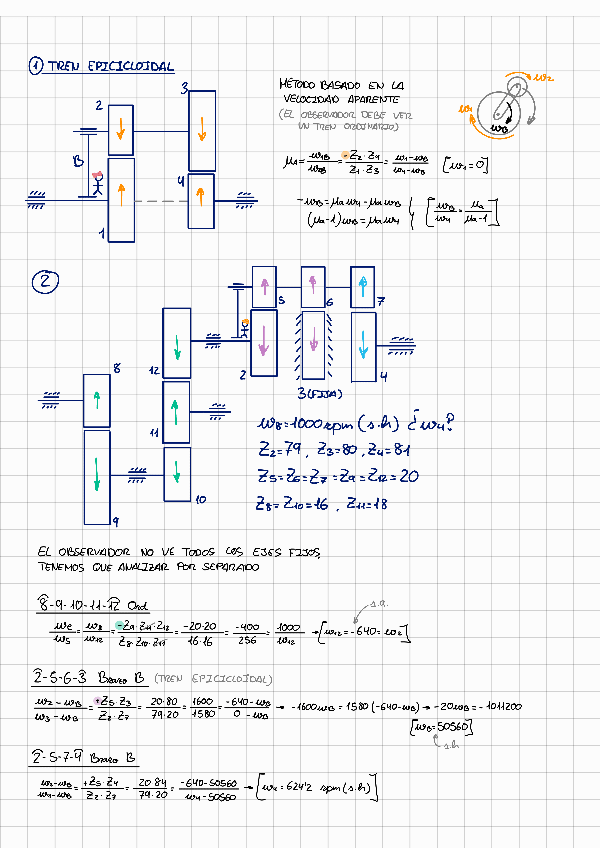 ① TREN EPICICLOIDAL
MÉTODO BASADO EN LA
VELOCIDAD APARENTE
(EL OBSERVADOR DEBE VER
UN TREN ORDINARIO)
2
3
B
1
4
ω₂
ω₁
ωB
μa = ω1B/ωBB = -Z2·Z4/Z1·Z3 = ω1-ωB/ω4-ωB [ω1=0]
-ωB = μa ω4 - μa ωB
(μa-1)ωB = μa ω4 { [ωB/ω4 = μa/μa-1]
②
5
6
7
12
2
3(FIJA)
4
8
11
10
9
ω8=1000 rpm (s.h) ¿ω4?
Z2=79, Z3=80, Z4=81
Z5=Z6=Z7=Z9=Z12=20
Z8=Z10=16, Z11=18
EL OBSERVADOR NO VE TODOS LOS EJES FIJOS,
TENEMOS QUE ANALIZAR POR SEPARADO
8-9-10-11-12 Ord
s.a.
ωe/ωs = ω8/ω12 = -Z9·Z11·Z12/Z8·Z10·Z11 = -20·20/16·16 = -400/256 = 1000/ω12 → [ω12=-640=ω2]
2-5-6-3 Brazo B (TREN EPICICLOIDAL)
ω2-ωB/ω3-ωB = +Z5·Z3/Z2·Z7 = 20·80/79·20 = 1600/1580 = -640-ωB/0-ωB → -1600ωB = 1580(-640-ωB) → -20ωB = -1011200
[ωB=50560]
s.h
2-5-7-4 Brazo B
ω2-ωB/ω4-ωB = +Z5·Z4/Z2·Z7 = 20·84/79·20 = -640-50560/ω4-50560 → [ω4=624'2 rpm (s.h)]